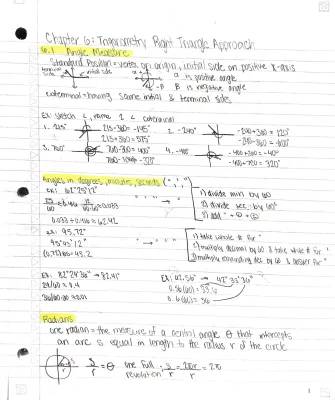 Chapter 6: Trigonometry Right Triangle Approach
6.1 Angle Measure
Standard Position = vertex on origin, initial side on positive x-axis
terminal side initial side α α is positive angle
β B is negative angle
coterminal = having same initial & terminal sides
Ex: sketch ∠, name 2 ∠ coterminal
1. 215° 215-360 = -145°
215+360 = 575°
2. -240° -240+360 = 120°
-240-360 = -600°
3. 700° 700-360 = 340°
4. -400 -400+360 = -40°
-400+720 = 320°
Angles in degrees, minutes, seconds (° ' ")
1) divide min by 60
2) divide sec. by 60²
3) add ° + ① + ②
ex: 95.72°
95°43'12"
(0.72)60 = 43.2
1) take whole # for °
2) multiply decimal by 60 & take whole # for '
3) multiply remaining dec by 60 & answer for "
Ex: 82°24'36" → 82.41°
24/60 = 0.4
36/60·60 = 0.01
Ex: 42.56° → 42°33'36"
0.56(60) = 33.6
0.6(60) = 36
Radians
one radian = the measure of a central angle θ that intercepts
an arc s equal in length to the radius r of the circle
s/r = θ one full revolution: s/r = 2πr/r = 2π